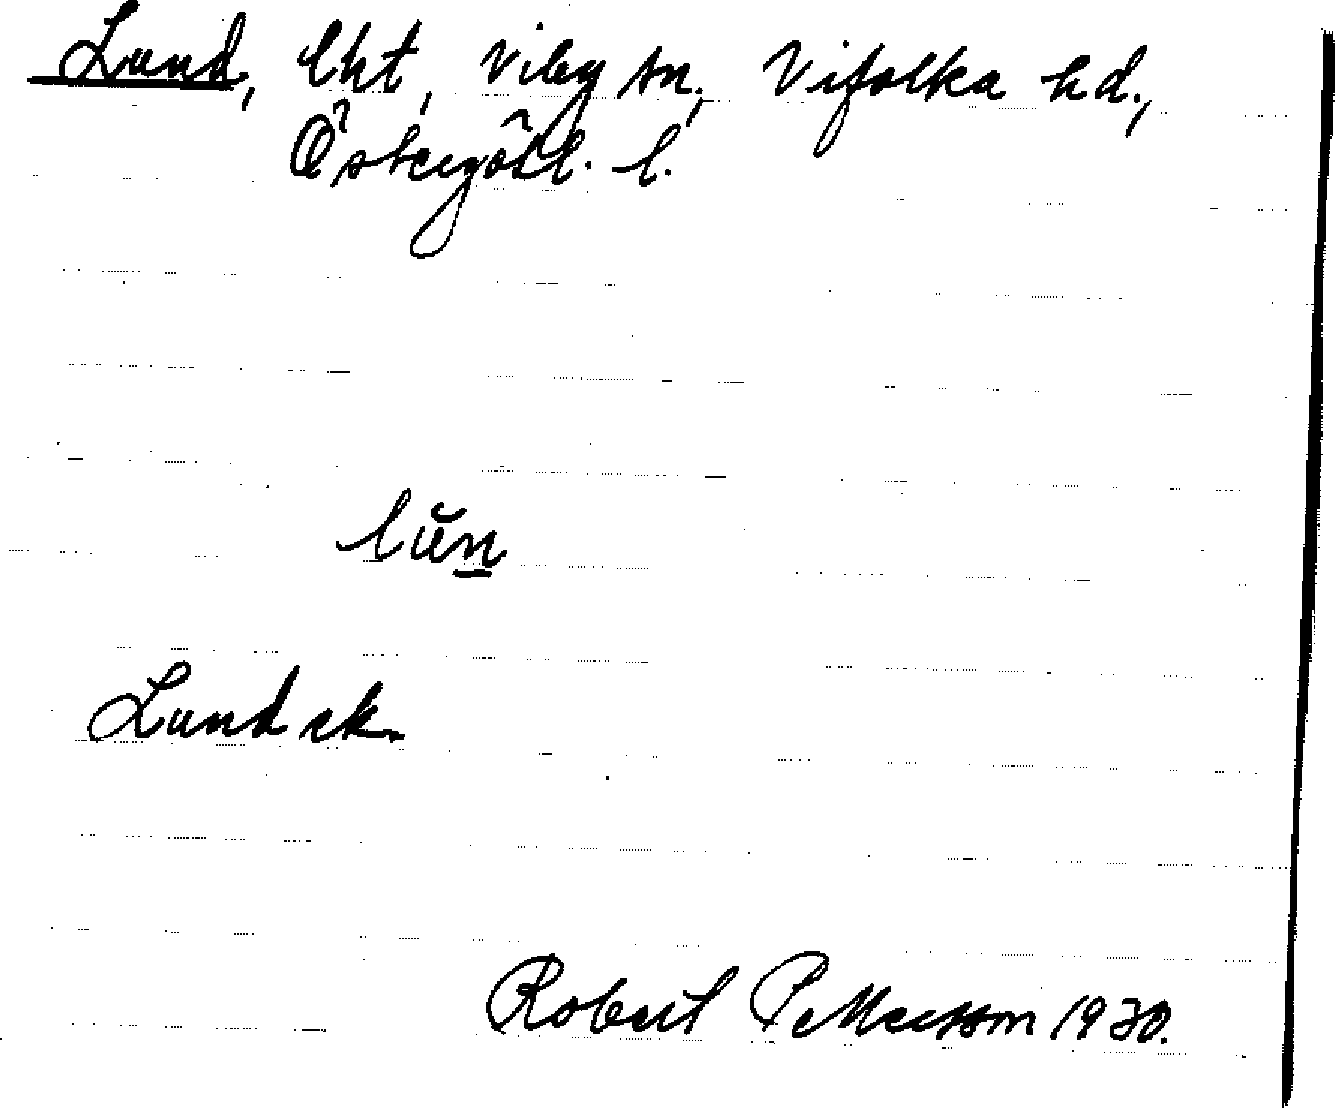 Lund, lht, Viby sn, Vifolka hd.,
Östergötl. l.
lŭn
Lund ek.
Robert Pettersson 1930.